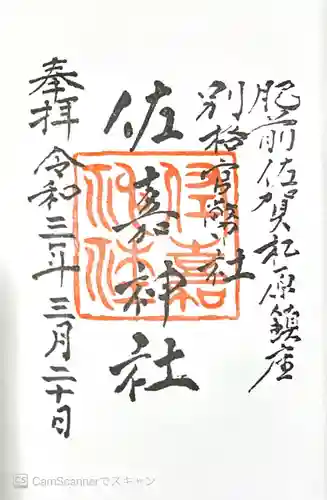 肥前佐賀松原鎮座
別格官幣社
佐嘉神社
奉拝 令和三年三月二十日
CS CamScannerでスキャン